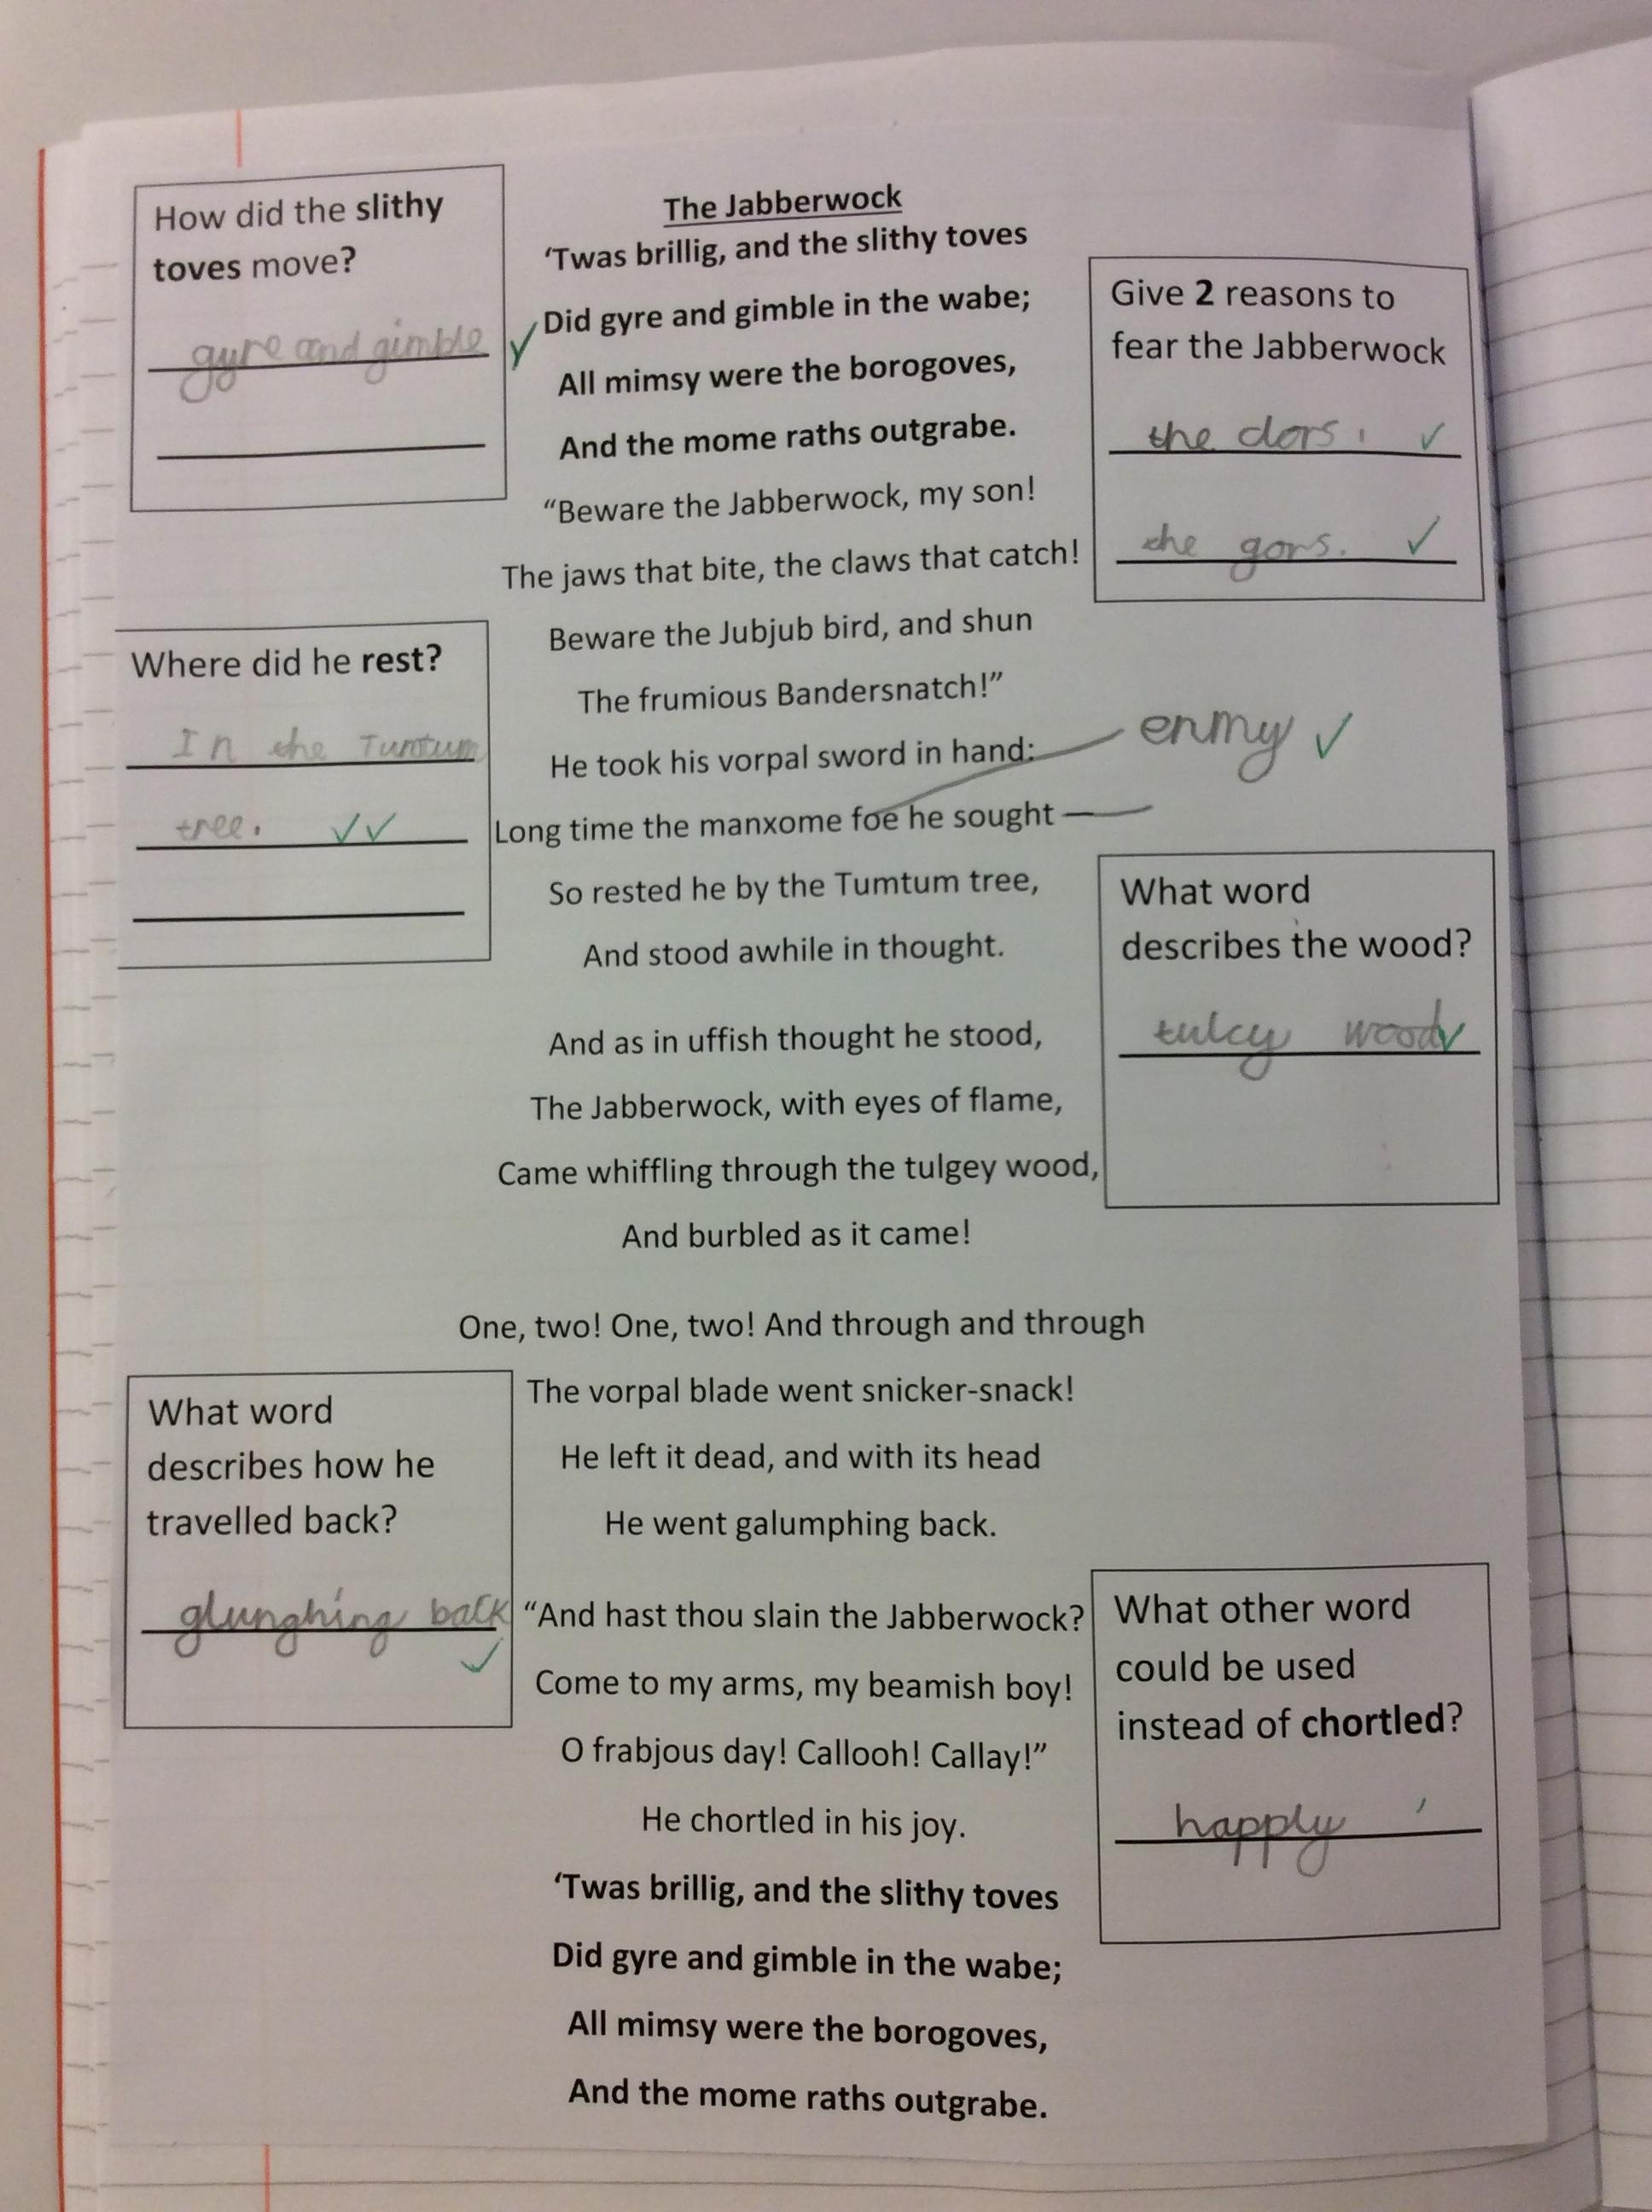 How did the slithy
toves move?
gyre and gimble
The Jabberwock
‘Twas brillig, and the slithy toves
Did gyre and gimble in the wabe;
All mimsy were the borogoves,
And the mome raths outgrabe.
“Beware the Jabberwock, my son!
The jaws that bite, the claws that catch!
Beware the Jubjub bird, and shun
The frumious Bandersnatch!”
He took his vorpal sword in hand:
Long time the manxome foe he sought —
So rested he by the Tumtum tree,
And stood awhile in thought.
Give 2 reasons to
fear the Jabberwock
the clors.
the gors.
enmy
Where did he rest?
In the Tumtum
tree.
What word
describes the wood?
tulcy wood
And as in uffish thought he stood,
The Jabberwock, with eyes of flame,
Came whiffling through the tulgey wood,
And burbled as it came!
One, two! One, two! And through and through
The vorpal blade went snicker-snack!
He left it dead, and with its head
He went galumphing back.
What word
describes how he
travelled back?
glunghing back
“And hast thou slain the Jabberwock?
Come to my arms, my beamish boy!
O frabjous day! Callooh! Callay!”
He chortled in his joy.
‘Twas brillig, and the slithy toves
Did gyre and gimble in the wabe;
All mimsy were the borogoves,
And the mome raths outgrabe.
What other word
could be used
instead of chortled?
happly